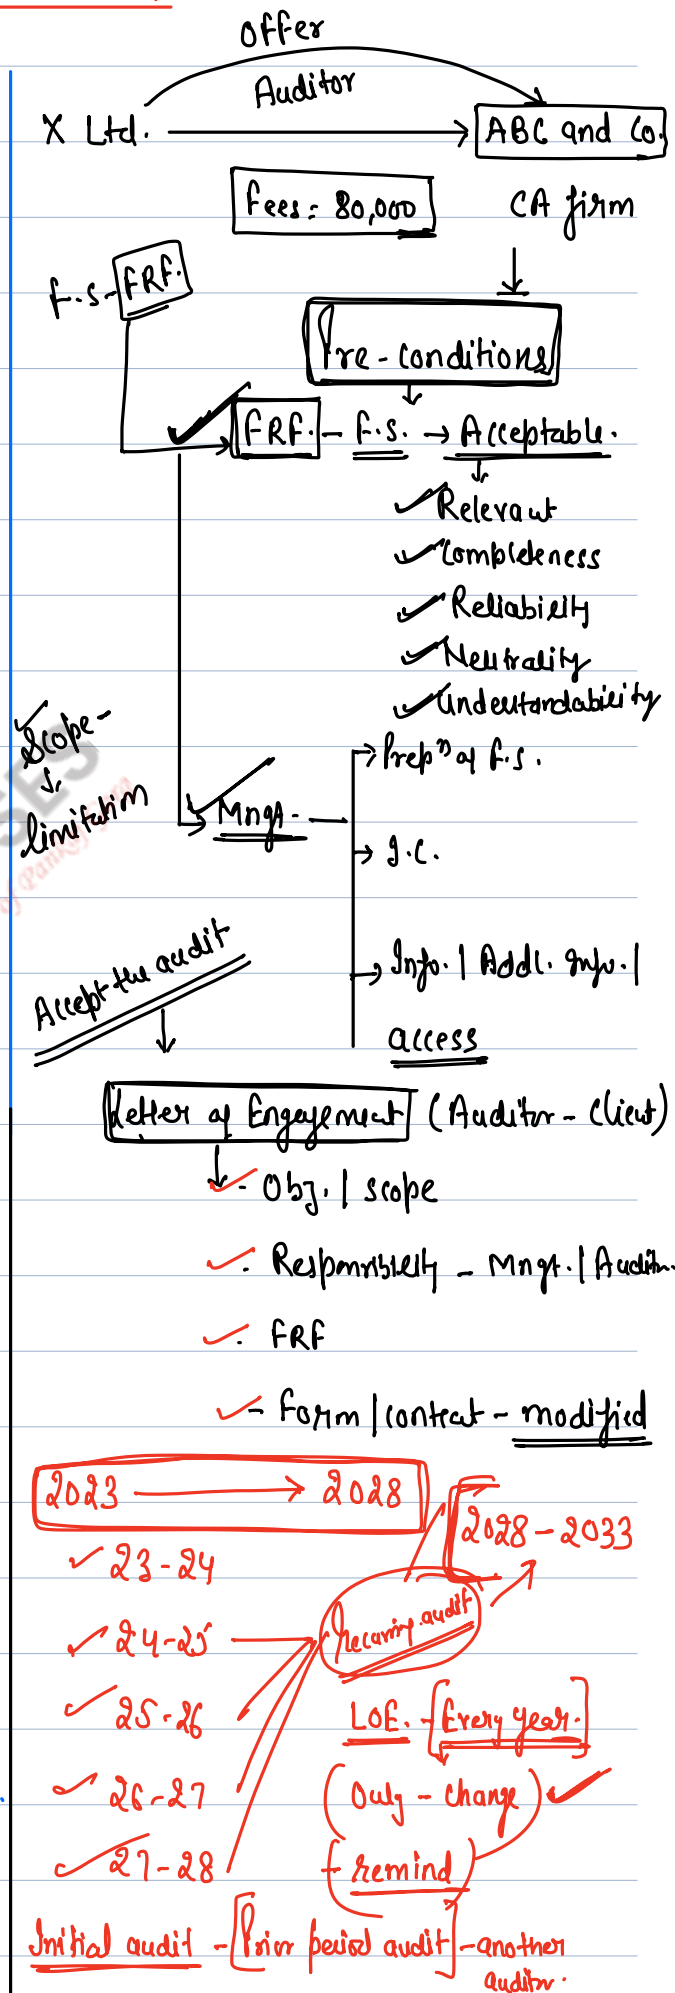 Offer
Auditor
X Ltd. ABC and Co.
Fees = 80,000 CA firm
F.S - FRF.
Pre-conditions
FRF. - F.S. → Acceptable.
Relevant
Completeness
Reliability
Neutrality
Understandability
Scope -
limitation
Prepⁿ of F.S.
Mngt -
I.C.
Info. | Addl. Info. |
access
Accept the audit
Letter of Engagement (Auditor - Client)
- Obj. | scope
- Responsibility - Mngt. | Auditor.
- FRF
- Form | content - modified
2023 → 2028
2028 - 2033
23-24
24-25
Recurring audit
25-26
LOE. - [Every year.]
26-27
(Only - change)
27-28
- remind
Initial audit - [Prior period audit] - another
auditor.